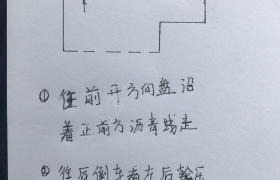 ① 往前开方向盘沿
着正前方沥青线走
② 往后倒车看左后轮压